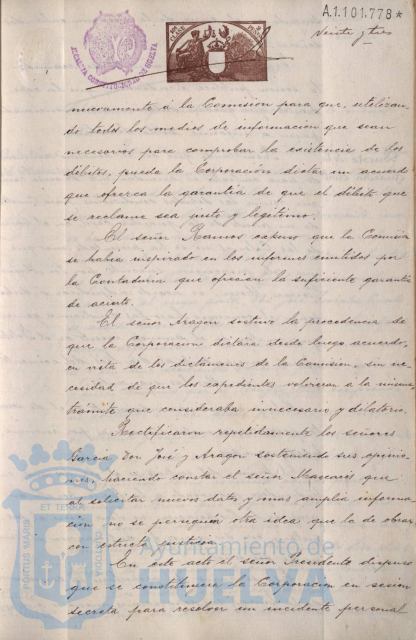 A.1.101.778*
Veinte y tres
nuevamente á la Comisión para que, utilizan-
do todos los medios de información que sean
necesarios para comprobar la existencia de los
débitos, pueda la Corporación dictar un acuerdo
que ofrezca la garantía de que el débito que
se reclame sea justo y legítimo.
El señor Ramos expuso que la Comisión
se había inspirado en los informes emitidos por
la Contaduría que ofrecían la suficiente garantía
de acierto.
El señor Aragón sostuvo la procedencia de
que la Corporación dictara desde luego acuerdo,
en vista de los dictámenes de la Comisión, sin ne-
cesidad de que los expedientes volvieran a la misma
trámite que consideraba innecesario y dilatorio.
Rectificaron repetidamente los señores
García Don José y Aragón sosteniendo sus opinio-
nes, haciendo constar el señor Mascarós que
al solicitar nuevos datos y mas amplia informa-
ción no se perseguía otra idea que la de obrar
con estricta justicia.
En este acto el señor Presidente dispuso
que se constituyera la Corporación en sesión
secreta para resolver un incidente personal
Ayuntamiento de
HUELVA